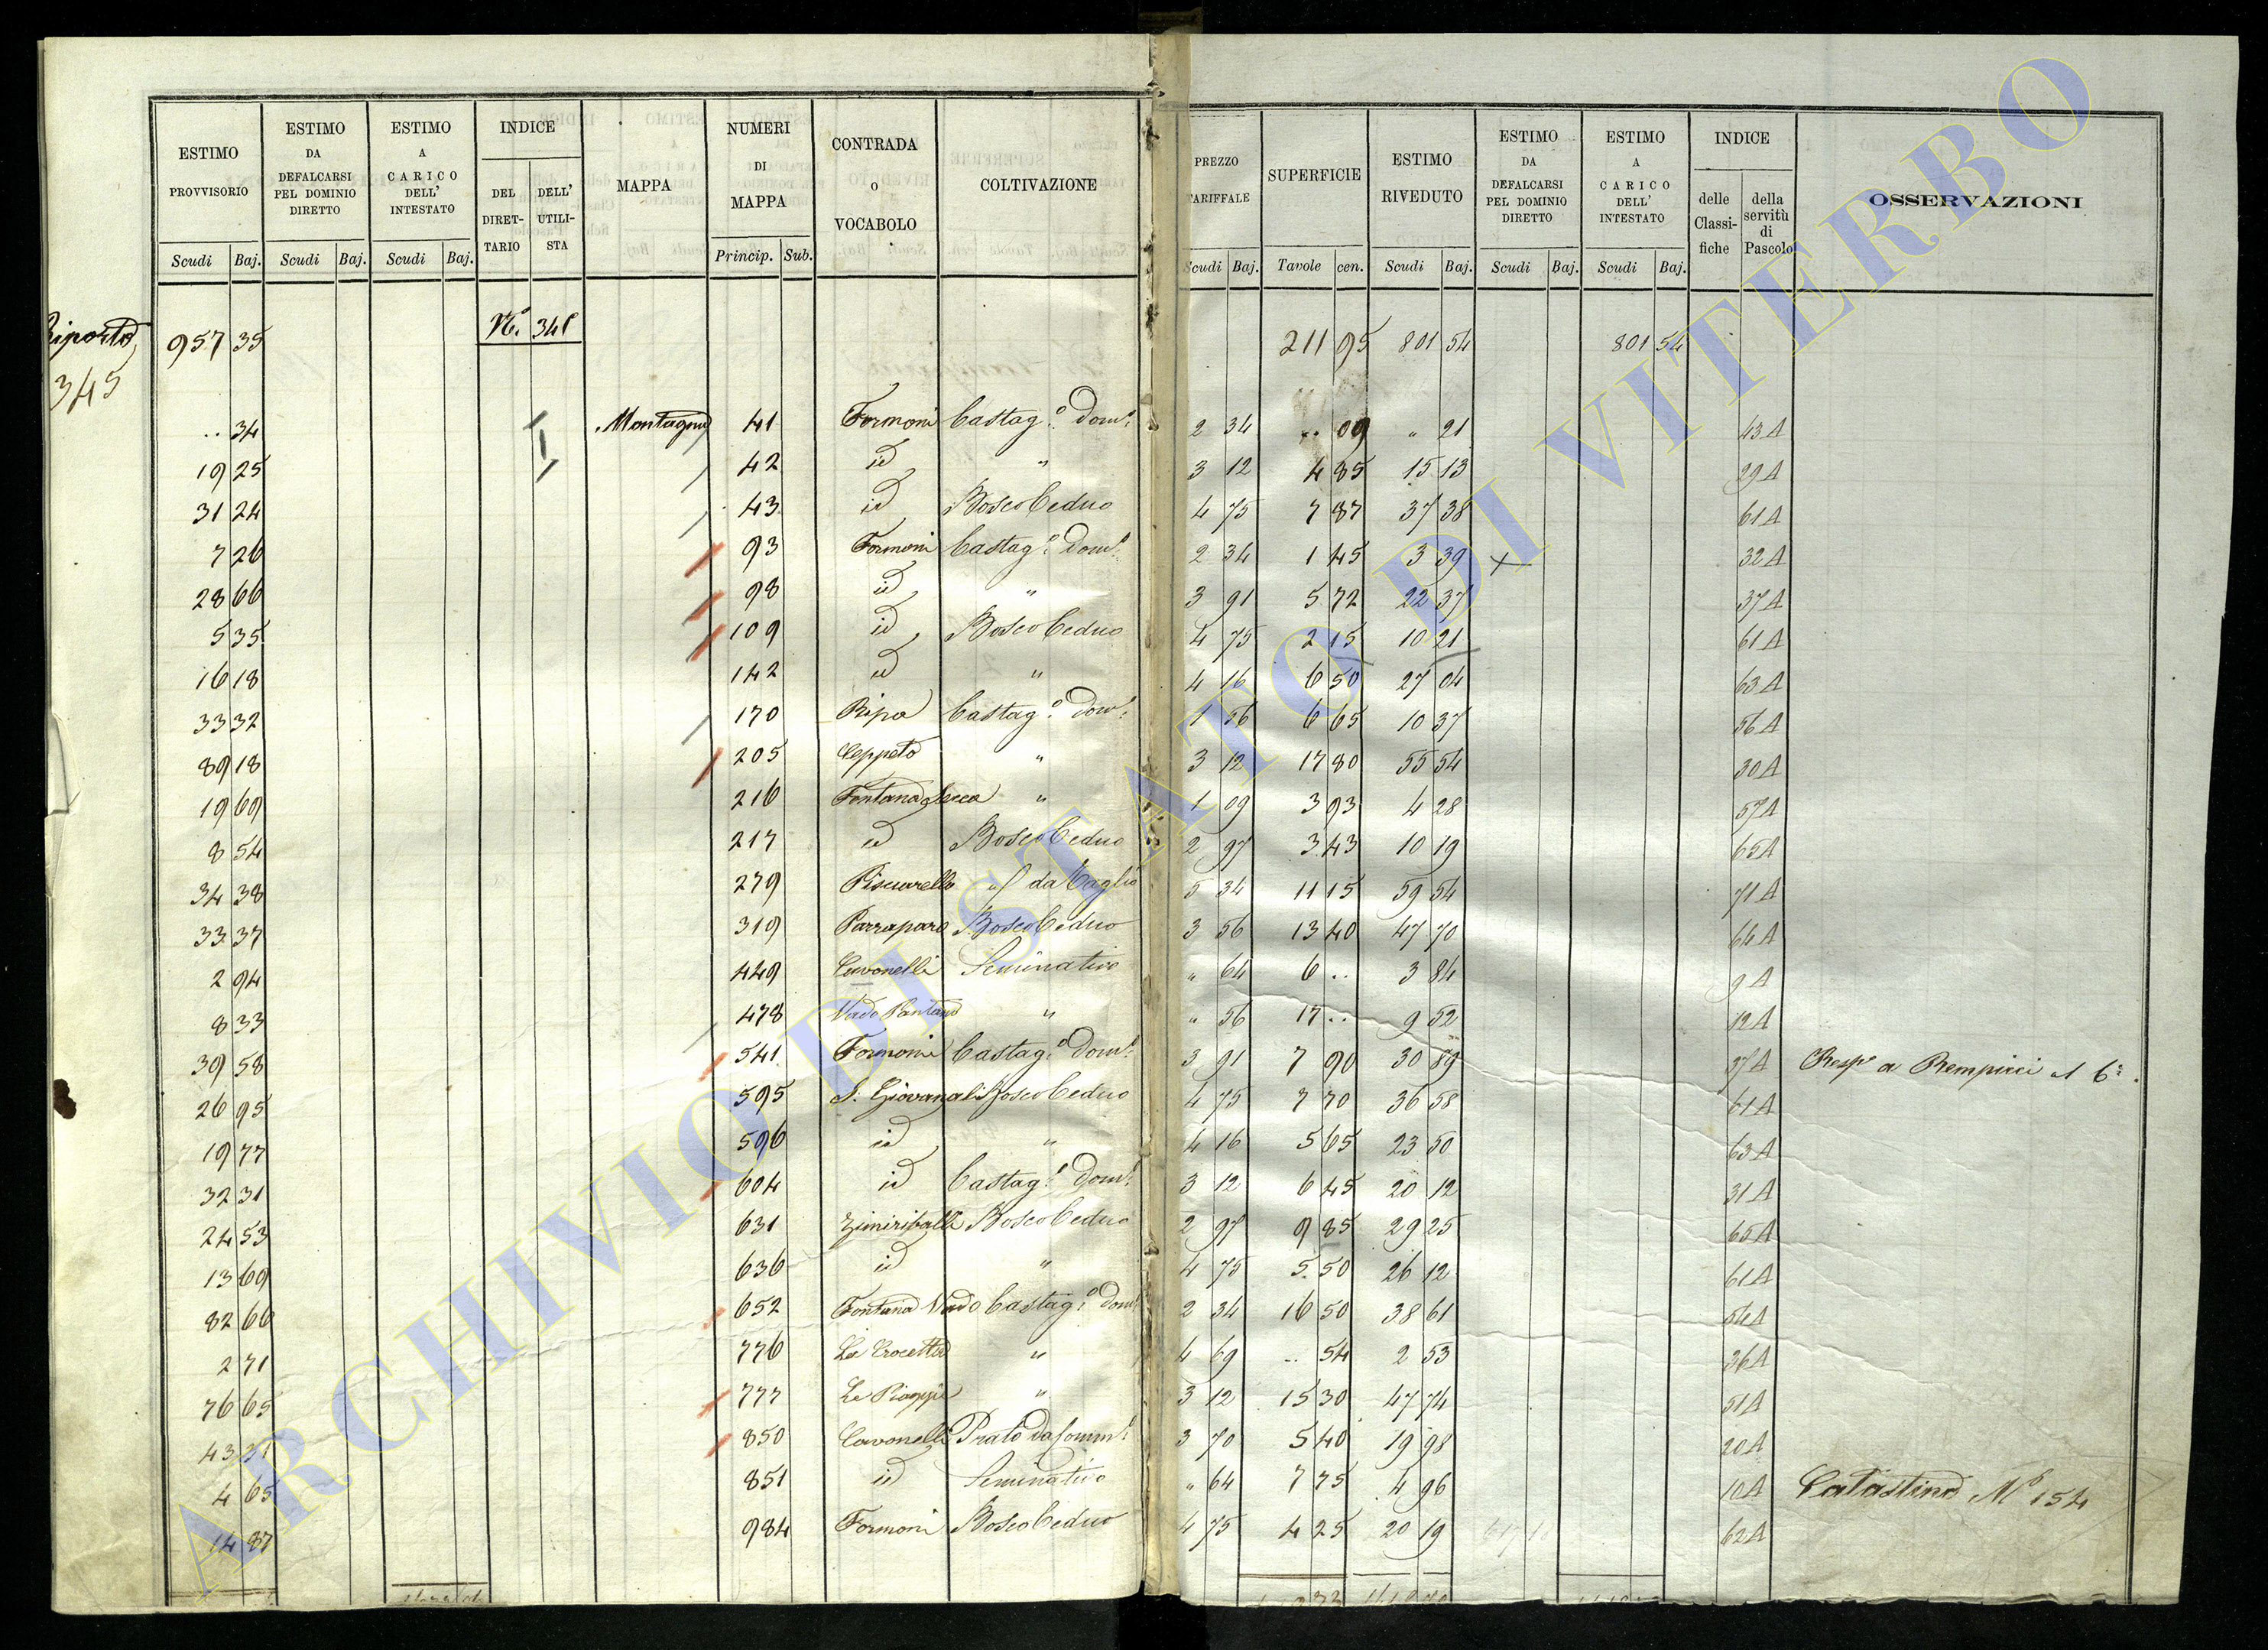 ESTIMO PROVVISORIO | ESTIMO DA DEFALCARSI PEL DOMINIO DIRETTO | ESTIMO A CARICO DELL' INTESTATO | INDICE DEL DIRETTARIO | DELL' UTILISTA | MAPPA | NUMERI DI MAPPA | CONTRADA O VOCABOLO | COLTIVAZIONE | PREZZO TARIFFALE | SUPERFICIE | ESTIMO RIVEDUTO | ESTIMO DA DEFALCARSI PEL DOMINIO DIRETTO | ESTIMO A CARICO DELL' INTESTATO | INDICE delle Classifiche | della servitù di Pascolo | OSSERVAZIONI
Scudi Baj. | Scudi Baj. | Scudi Baj. | Princip. Sub. | Scudi Baj. | Tavole cen. | Scudi Baj. | Scudi Baj. | Scudi Baj.
Riporto 957 35 | N. 341 | 211 95 | 801 54 | 801 54
345
.. 34 | Montagna | 41 | Formoni | Castag.o Dom.l | 2 34 | .. 09 | " 21 | 43 A
19 25 | 42 | id | " | 3 12 | 4 85 | 15 13 | 29 A
31 24 | 43 | id | Bosco Ceduo | 4 75 | 7 87 | 37 38 | 61 A
7 26 | 93 | Formoni | Castag.o Dom.l | 2 34 | 1 45 | 3 39 | 32 A
28 66 | 98 | id | " | 3 91 | 5 72 | 22 37 | 37 A
5 35 | 109 | id | Bosco Ceduo | 4 75 | 2 15 | 10 21 | 61 A
16 18 | 142 | id | " | 4 16 | 6 50 | 27 04 | 63 A
33 32 | 170 | Ripa | Castag.o Dom.l | 1 56 | 6 65 | 10 37 | 56 A
89 18 | 205 | Ceppeto | " | 3 12 | 17 80 | 55 54 | 30 A
19 69 | 216 | Fontana Secca | " | 1 09 | 3 93 | 4 28 | 57 A
8 54 | 217 | id | Bosco Ceduo | 2 97 | 3 43 | 10 19 | 65 A
34 38 | 279 | Pisciarello | da Taglio | 5 34 | 11 15 | 59 54 | 71 A
33 37 | 319 | Parraparo | Bosco Ceduo | 3 56 | 13 40 | 47 70 | 64 A
2 94 | 449 | Cavonelli | Seminativo | " 64 | 6 .. | 3 84 | 9 A
8 33 | 478 | Vado Pantano | " | " 56 | 17 .. | 9 52 | 12 A
39 58 | 541 | Formoni | Castag.o Dom.l | 3 91 | 7 90 | 30 89 | 37 A | Resp.e a Rempicci
26 95 | 595 | S. Giovanali | Bosco Ceduo | 4 75 | 7 70 | 36 58 | 61 A
19 77 | 596 | id | " | 4 16 | 5 65 | 23 50 | 63 A
32 31 | 604 | id | Castag.o Dom.l | 3 12 | 6 45 | 20 12 | 31 A
24 53 | 631 | Zimiriballi | Bosco Ceduo | 2 97 | 9 85 | 29 25 | 65 A
13 69 | 636 | id | " | 4 75 | 5 50 | 26 12 | 61 A
82 66 | 652 | Fontana Vado | Castag.o Dom.l | 2 34 | 16 50 | 38 61 | 54 A
2 71 | 776 | La Crocetta | " | 4 69 | .. 54 | 2 53 | 26 A
76 65 | 777 | Le Piaggie | " | 3 12 | 15 30 | 47 74 | 51 A
43 31 | 850 | Cavonelli | Prato da Somm.l | 3 70 | 5 40 | 19 98 | 20 A
4 65 | 851 | id | Seminativo | " 64 | 7 75 | 4 96 | 10 A | Catastino N.o 154
14 87 | 984 | Formoni | Bosco Ceduo | 4 75 | 4 25 | 20 19 | 62 A
ARCHIVIO DI STATO DI VITERBO